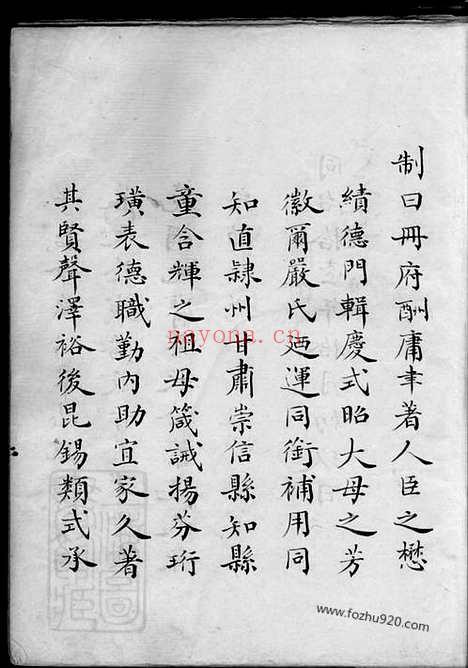 制曰冊府酬庸聿著人臣之懋
績德門輯慶式昭大母之芳
徽爾嚴氏廼運同銜補用同
知直隸州甘肅崇信縣知縣
童含輝之祖母箴誡揚芬珩
璜表德職勤內助宜家久著
其賢聲澤裕後昆錫類式承
nayona.cn
www.fozhu920.com